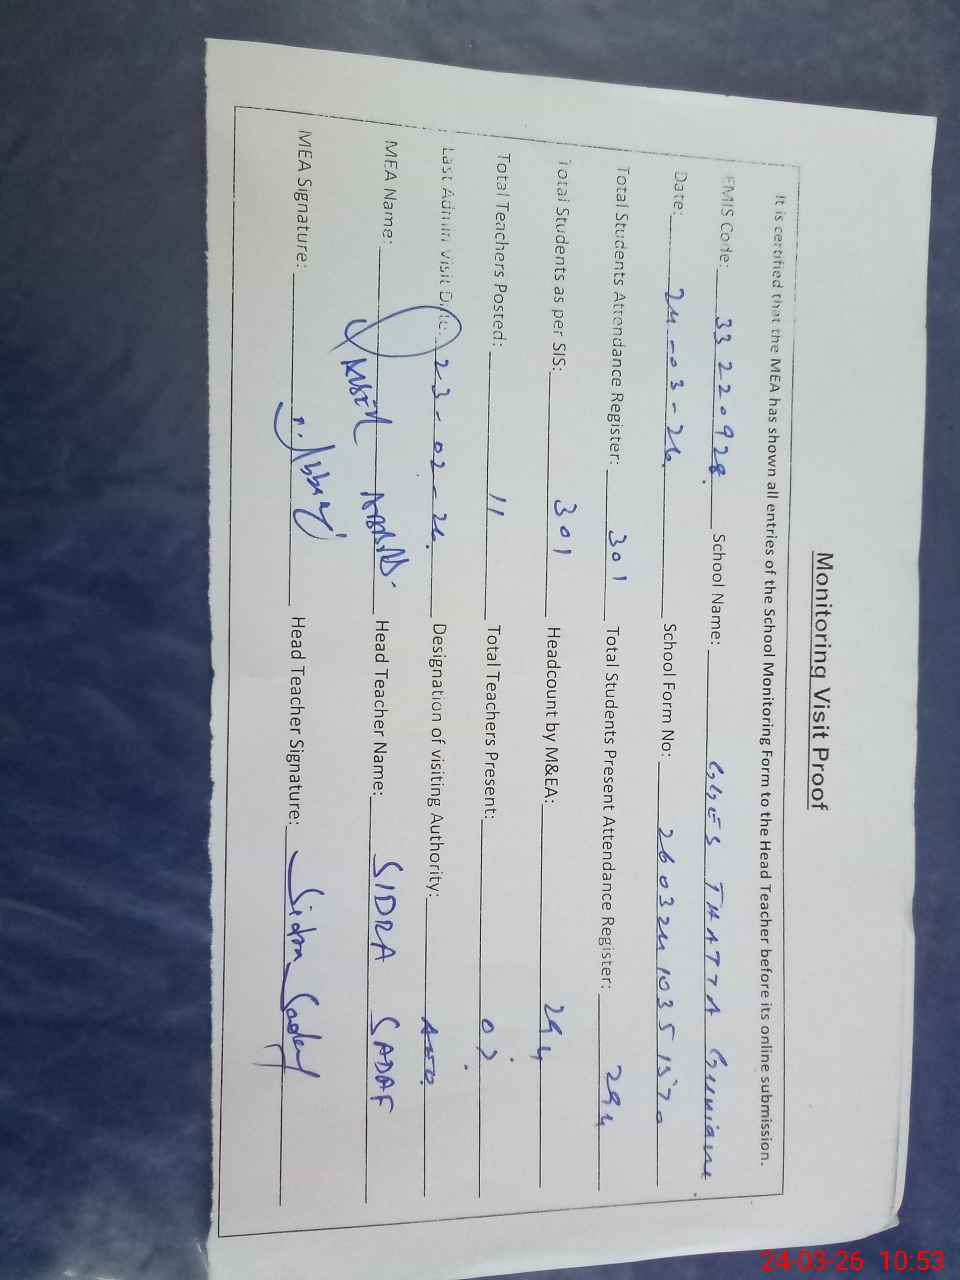 Monitoring Visit Proof
It is certified that the MEA has shown all entries of the School Monitoring Form to the Head Teacher before its online submission.
EMIS Code: 33220928 School Name: GGES THATTA
Date: 24-03-26 School Form No: 2603241035
Total Students Attendance Register: 301 Total Students Present Attendance Register: 294
Total Students as per SIS: 301 Headcount by M&EA: 294
Total Teachers Posted: 11 Total Teachers Present:
Last Admin Visit Date: 23-02-26 Designation of visiting Authority:
MEA Name: Head Teacher Name: SIDRA SADAF
MEA Signature: Head Teacher Signature: Sidra Sadaf
24-03-26 10:53